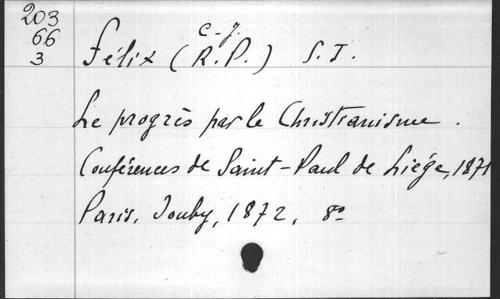 203
66
3
C.-J.
Félix (R.P.) S.J.
Le progrès par le Christianisme.
Conférences de Saint-Paul de Liége, 1871
Paris, Jouby, 1872, 8°